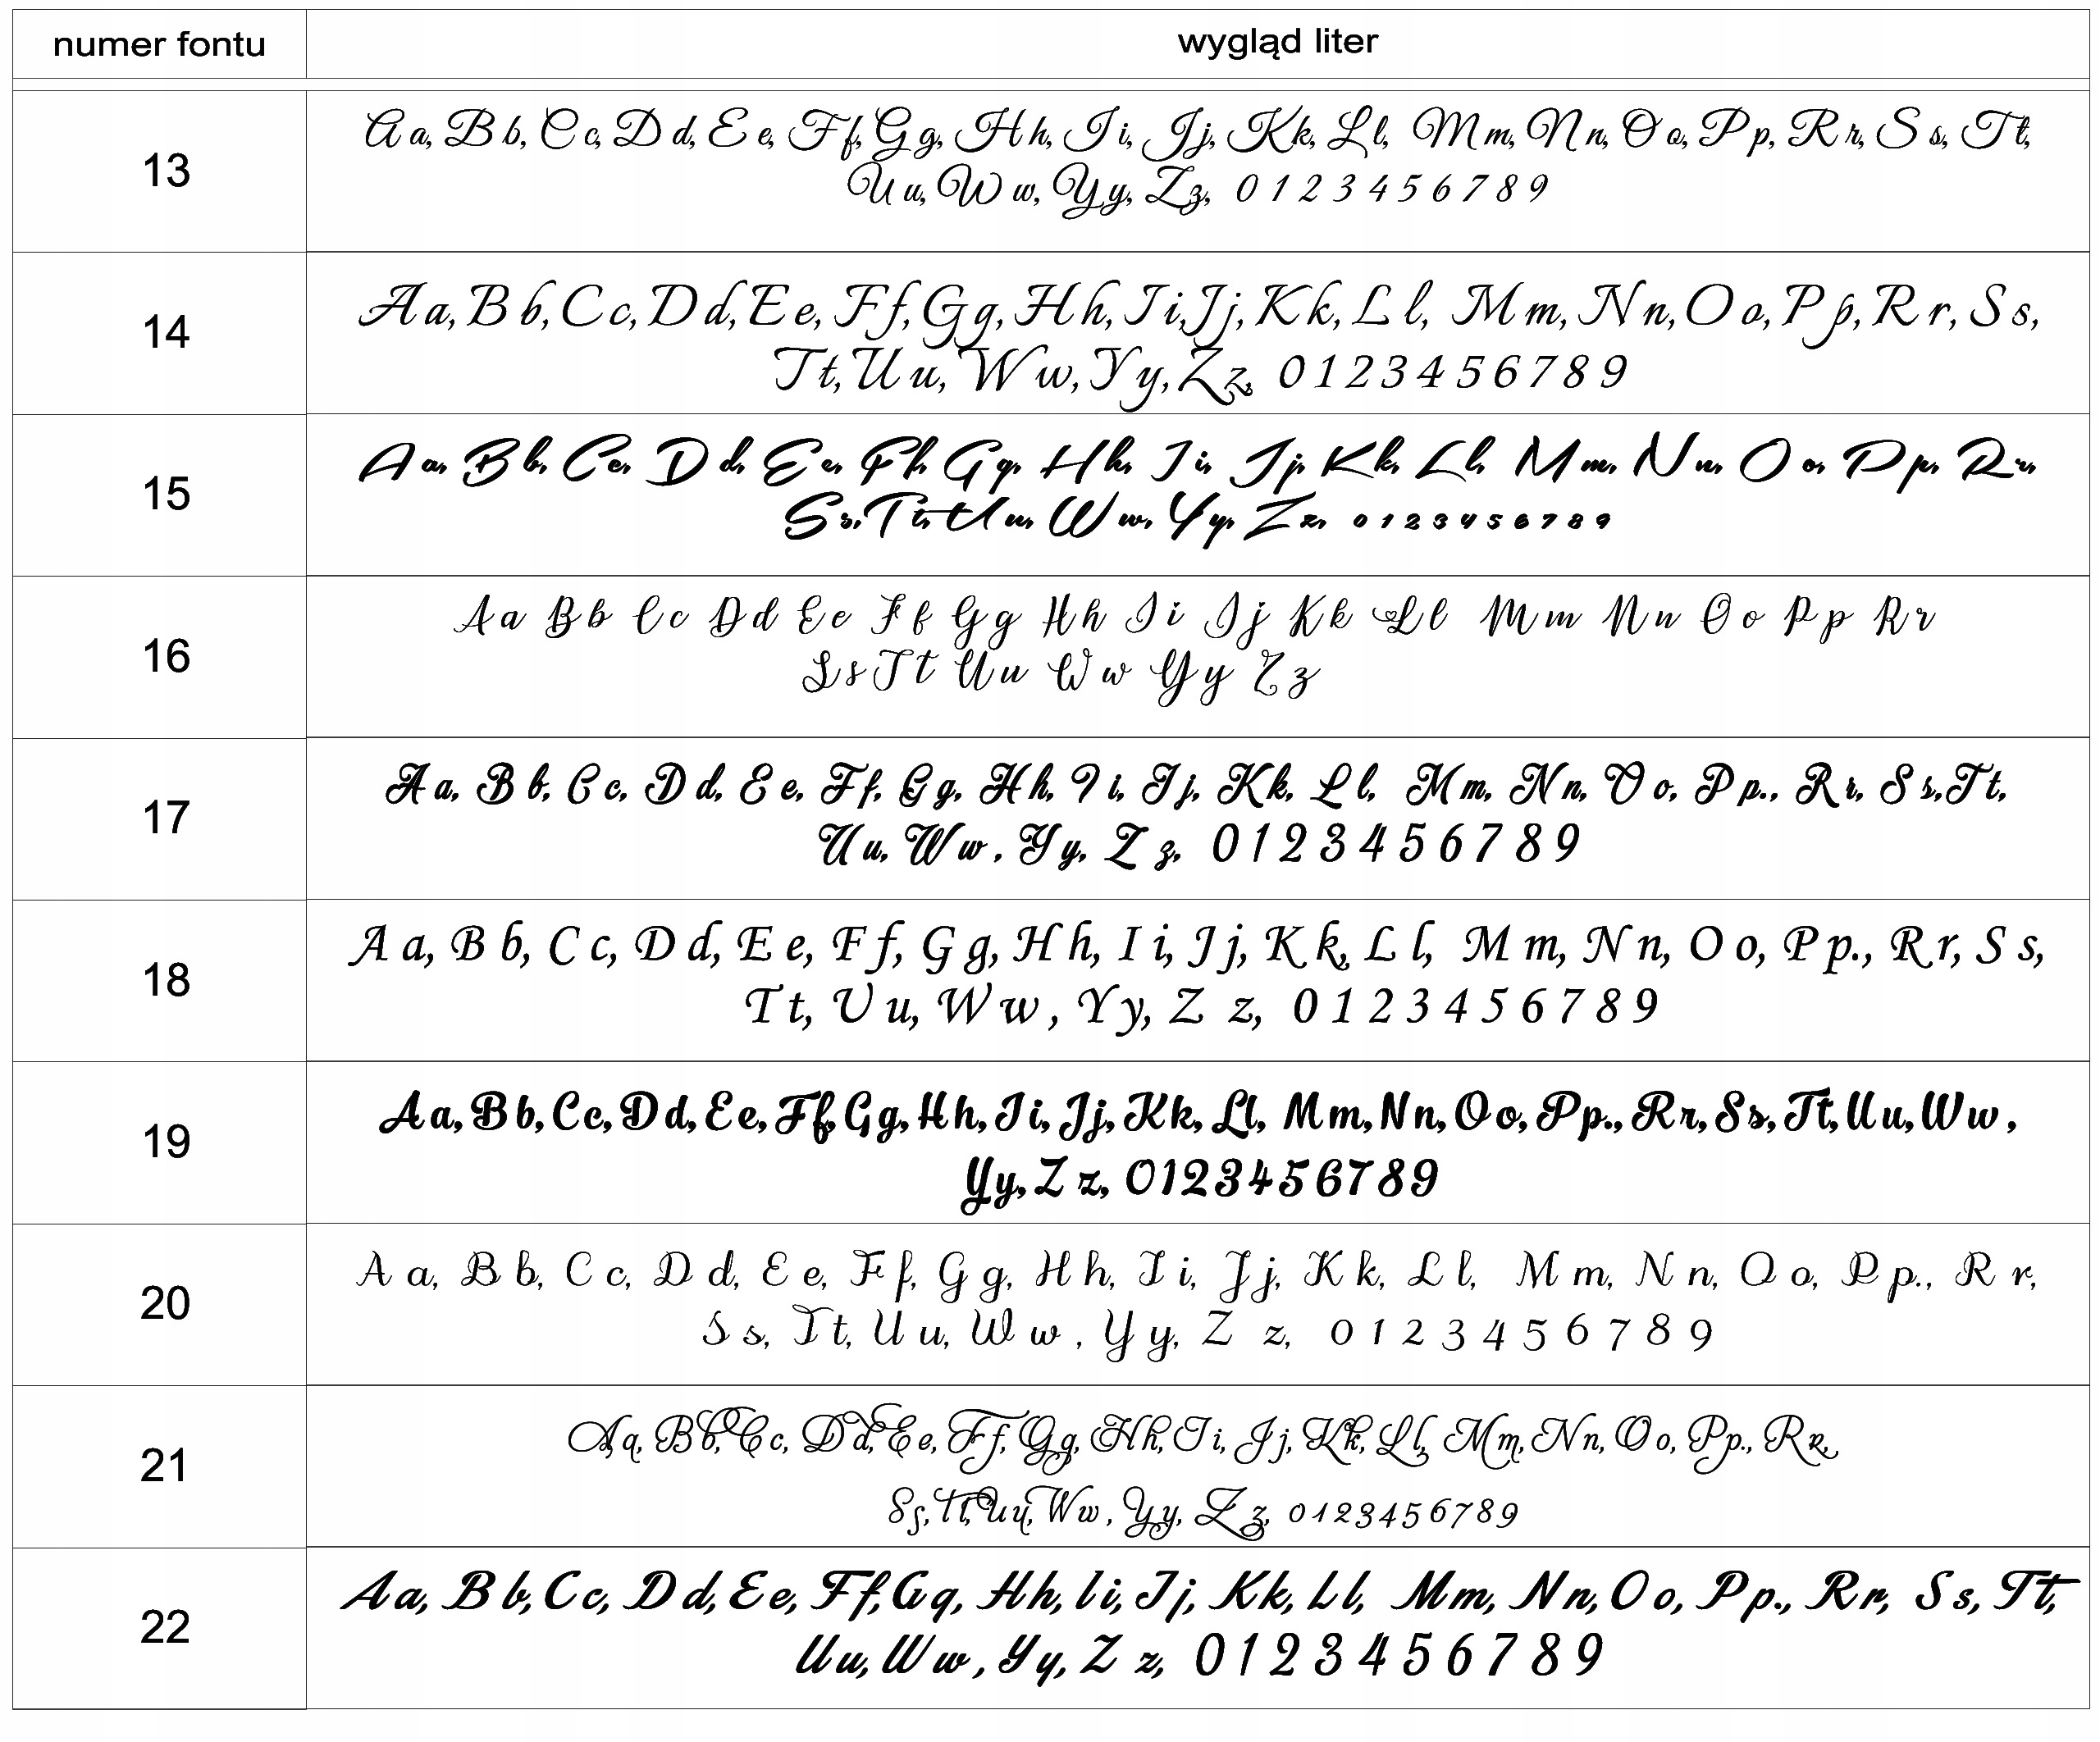 numer fontu wygląd liter
13
Aa, Bb, Cc, Dd, Ee, Ff, Gg, Hh, Ii, Jj, Kk, Ll, Mm, Nn, Oo, Pp, Rr, Ss, Tt,
Uu, Ww, Yy, Zz, 0 1 2 3 4 5 6 7 8 9
14
Aa, Bb, Cc, Dd, Ee, Ff, Gg, Hh, Ii, Jj, Kk, Ll, Mm, Nn, Oo, Pp, Rr, Ss,
Tt, Uu, Ww, Yy, Zz, 0 1 2 3 4 5 6 7 8 9
15
Aa, Bb, Cc, Dd, Ee, Ff, Gg, Hh, Ii, Jj, Kk, Ll, Mm, Nn, Oo, Pp, Rr,
Ss, Tt, Uu, Ww, Yy, Zz, 0 1 2 3 4 5 6 7 8 9
16
Aa Bb Cc Dd Ee Ff Gg Hh Ii Jj Kk Ll Mm Nn Oo Pp Rr
Ss Tt Uu Ww Yy Zz
17
A a, B b, C c, D d, E e, F f, G g, H h, I i, J j, K k, L l, M m, N n, O o, P p., R r, S s, T t,
U u, W w , Y y, Z z, 0 1 2 3 4 5 6 7 8 9
18
A a, B b, C c, D d, E e, F f, G g, H h, I i, J j, K k, L l, M m, N n, O o, P p., R r, S s,
T t, U u, W w , Y y, Z z, 0 1 2 3 4 5 6 7 8 9
19
Aa, Bb, Cc, Dd, Ee, Ff, Gg, Hh, Ii, Jj, Kk, Ll, Mm, Nn, Oo, Pp., Rr, Ss, Tt, Uu, Ww ,
Yy, Z z, 0123456789
20
A a, B b, C c, D d, E e, F f, G g, H h, I i, J j, K k, L l, M m, N n, O o, P p., R r,
S s, T t, U u, W w , Y y, Z z, 0 1 2 3 4 5 6 7 8 9
21
Aa, Bb, Cc, Dd, Ee, Ff, Gg, Hh, Ii, Jj, Kk, Ll, Mm, Nn, Oo, Pp., Rr,
Ss, Tt, Uu, Ww , Yy, Zz, 0 1 2 3 4 5 6 7 8 9
22
Aa, Bb, Cc, Dd, Ee, Ff, Gg, Hh, Ii, Jj, Kk, Ll, Mm, Nn, Oo, Pp., Rr, Ss, Tt,
Uu, Ww , Yy, Z z, 0 1 2 3 4 5 6 7 8 9